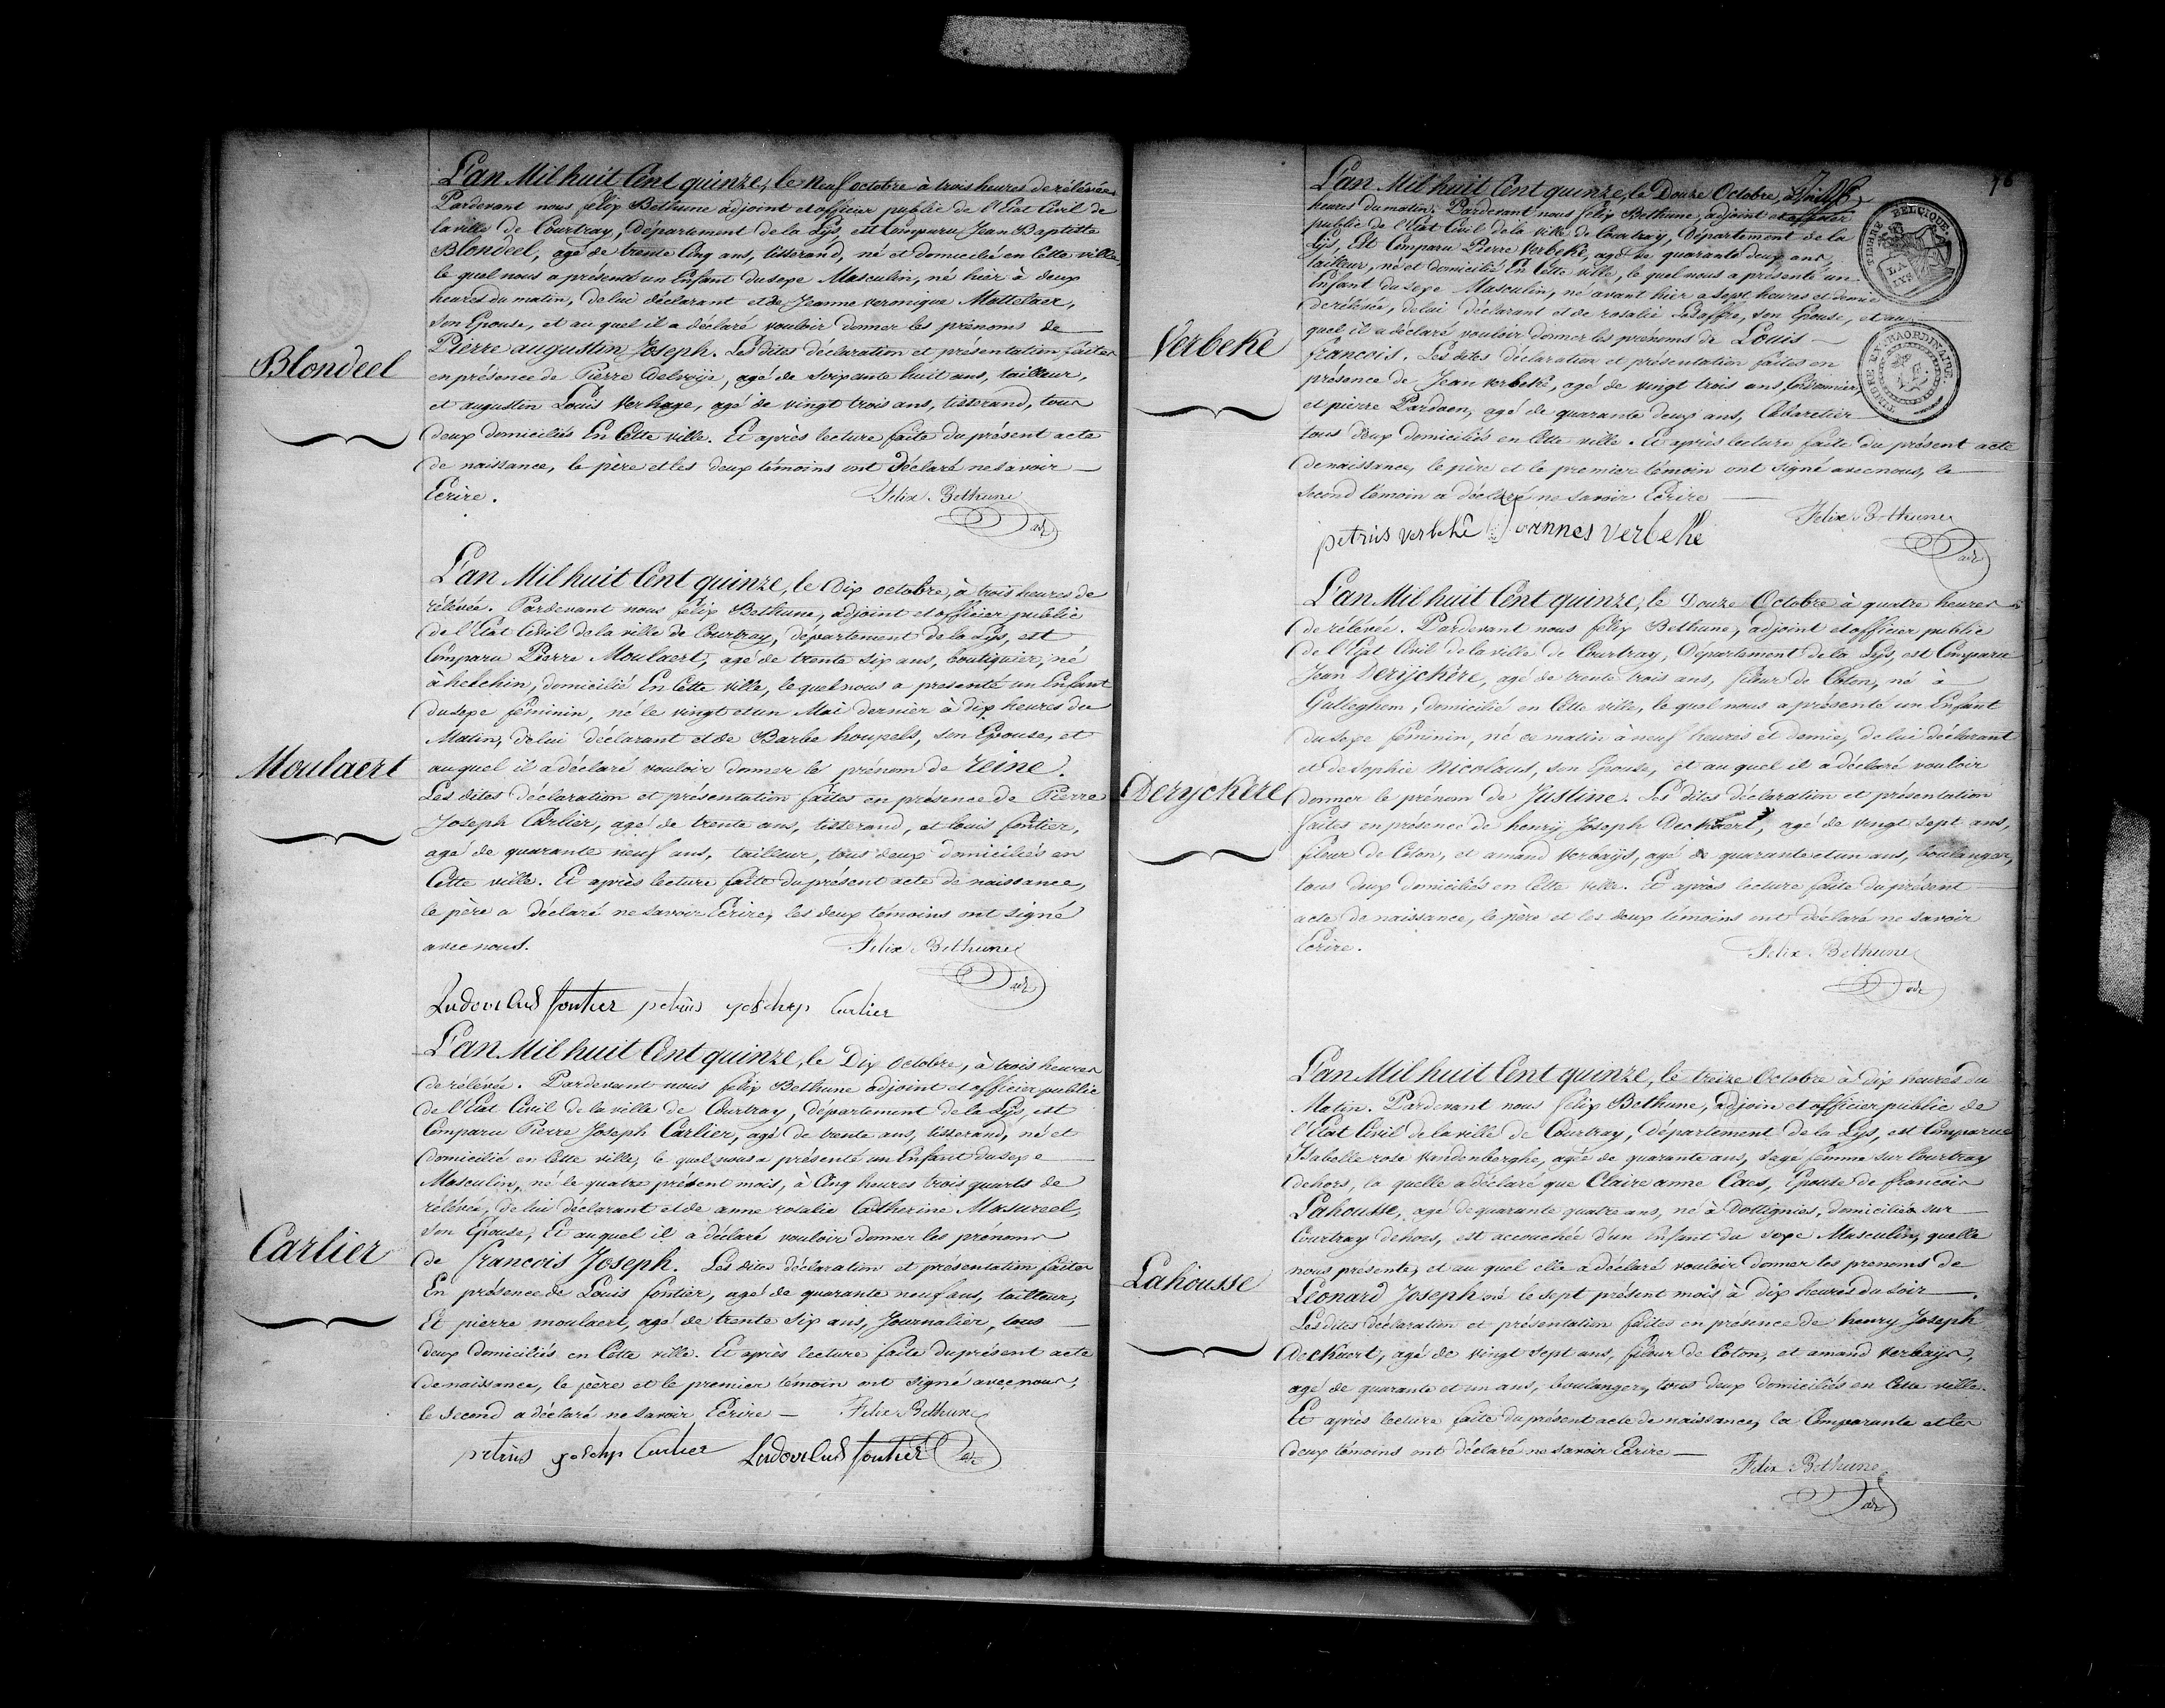 Blondeel
L'an Mil huit Cent quinze, le neuf octobre à trois heures de rélévée
Pardevant nous felix Bethune adjoint et officier public de l'Etat Civil de
la ville de Courtray, Département de la Lys est Comparu Jean Baptiste
Blondeel, agé de trente Cinq ans, tisserand, né et domicilié en Cette ville,
le quel nous a présenté un Enfant du sexe Masculin, né hier à deux
heures du matin, de lui déclarant et de Jeanne veronique Mattelaer,
son Epouse, et au quel il a déclaré vouloir donner les prénoms de
Pierre augustin Joseph. Les dites déclaration et présentation faites
en présence de Pierre Delvoije, agé de soixante huit ans, tailleur,
et augustin Louis Verhage, agé de vingt trois ans, tisserand, tous
deux domiciliés En Cette ville. Et après lecture faite du présent acte
de naissance, le père et les deux témoins ont déclaré ne savoir
Ecrire. Felix Bethune
adj
Moulaert
L'an Mil huit Cent quinze, le Dix octobre, à trois heures de
rélévée. Pardevant nous felix Bethune, adjoint et officier public
de l'Etat Civil de la ville de Courtray, département de la Lys, est
Comparu Pierre Moulaert, agé de trente six ans, boutiquier, né
à helchin, domicilié En Cette ville, le quel nous a presenté un Enfant
du sexe féminin, né le vingt et un Mai dernier à dix heures du
Matin, de lui déclarant et de Barbe houpels, son Epouse, et
au quel il a déclaré vouloir donner le prénom de reine.
Les dites déclaration et présentation faites en présence de Pierre
Joseph Carlier, agé de trente ans, tisserand, et louis fontier,
agé de quarante neuf ans, tailleur, tous deux domiciliés en
Cette ville. Et après lecture faite du présent acte de naissance,
le père a déclaré ne savoir Ecrire, les deux témoins ont signé
avec nous. Felix Bethune
adj
Ludovicus fontier petrus joseph Carlier
Carlier
L'an Mil huit Cent quinze, le Dix Octobre, à trois heures
de rélévée. Pardevant nous felix Bethune adjoint et officier public
de l'Etat Civil de la ville de Courtray, département de la Lys, est
Comparu Pierre Joseph Carlier, agé de trente ans, tisserand, né et
domicilié en Cette ville, le quel nous a présenté un Enfant du sexe
Masculin, né le quatre présent mois, à Cinq heures trois quarts de
rélévée, de lui déclarant et de anne rosalie Catherine Masureel,
son Epouse, Et au quel il a déclaré vouloir donner les prénoms
de francois Joseph. Les dites déclaration et présentation faites
En présence de Louis fontier, agé de quarante neuf ans, tailleur,
Et pierre moulaert, agé de trente six ans, Journalier, tous
deux domiciliés en Cette ville. Et après lecture faite du présent acte
de naissance, le père et le premier témoin ont signé avec nous,
le second a déclaré ne savoir Ecrire — Felix Bethune
petrus joseph Carlier Ludovicus fontier adj
76
TIMBRE BELGIQUE.
LA LYS
TIMBRE EXTRAORDINAIRE.
Verbeke
L'an Mil huit Cent quinze, le Douze Octobre, à
heures du matin. Pardevant nous felix Bethune, adjoint et officier
public de l'Etat Civil de la ville de Courtray, Département de la
Lys, Est Comparu Pierre Verbeke, agé de quarante deux ans,
tailleur, né et domicilié En Cette ville, le quel nous a présenté un
Enfant du sexe Masculin, né avant hier à sept heures et demie
de rélévée, de lui déclarant et de rosalie Ledoffre, son Epouse, et au
quel il a déclaré vouloir donner les prénoms de Louis
francois. Les dites déclaration et présentation faites en
présence de Jean Verbeke, agé de vingt trois ans, Cordonnier,
et pierre Pardaen, agé de quarante deux ans, Cabaretier
tous deux domiciliés en Cette ville. Et après lecture faite du présent acte
de naissance, le père et le premier témoin ont signé avec nous, le
second témoin a déclaré ne savoir Ecrire
Felix Bethune
adj
petrus verbeke Joannes Verbeke
Deryckere
L'an Mil huit Cent quinze, le Douze Octobre à quatre heures
de rélévée. Pardevant nous felix Bethune, adjoint et officier public
de l'Etat Civil de la ville de Courtray, Département de la Lys, est Comparu
Jean Derijckere, agé de trente trois ans, fileur de Coton, né à
Gulleghem, domicilié en Cette ville, le quel nous a présenté un Enfant
du sexe féminin, né ce matin à neuf heures et demie, de lui déclarant
et de sophie Nicolaus, son Epouse, et au quel il a déclaré vouloir
donner le prénom de Justine. Les dites déclaration et présentation
faites en présence de henry Joseph Deckaert, agé de vingt sept ans,
fileur de Coton, et amand Verbaijs, agé de quarante et un ans, boulanger,
tous deux domiciliés en Cette ville. Et après lecture faite du présent
acte de naissance, le père et les deux témoins ont déclaré ne savoir
Ecrire. Felix Bethune
adj
Lahousse
L'an Mil huit Cent quinze, le treize Octobre à dix heures du
Matin. Pardevant nous felix Bethune, adjoin et officier public de
l'Etat Civil de la ville de Courtray, Département de la Lys, est Comparue
Isabelle rose Vandenberghe, agée de quarante ans, sage femme sur Courtray
dehors, la quelle a déclaré que Claire anne Caes, Epouse de francois
Lahousse, agé de quarante quatre ans, né à Dottignies, domiciliés sur
Courtray dehors, est accouchée d'un Enfant du sexe Masculin, quelle
nous présente, et au quel elle a déclaré vouloir donner les prenoms de
Léonard Joseph né le sept présent mois à dix heures du soir.
Les dites déclaration et présentation faites en présence de henry Joseph
Deckaert, agé de vingt sept ans, fileur de Coton, et amand Verbaijs,
agé de quarante et un ans, boulanger, tous deux domiciliés en Cette ville.
Et après lecture faite du présent acte de naissance, la Comparante et les
deux témoins ont déclaré ne savoir Ecrire —
Felix Bethune
adj